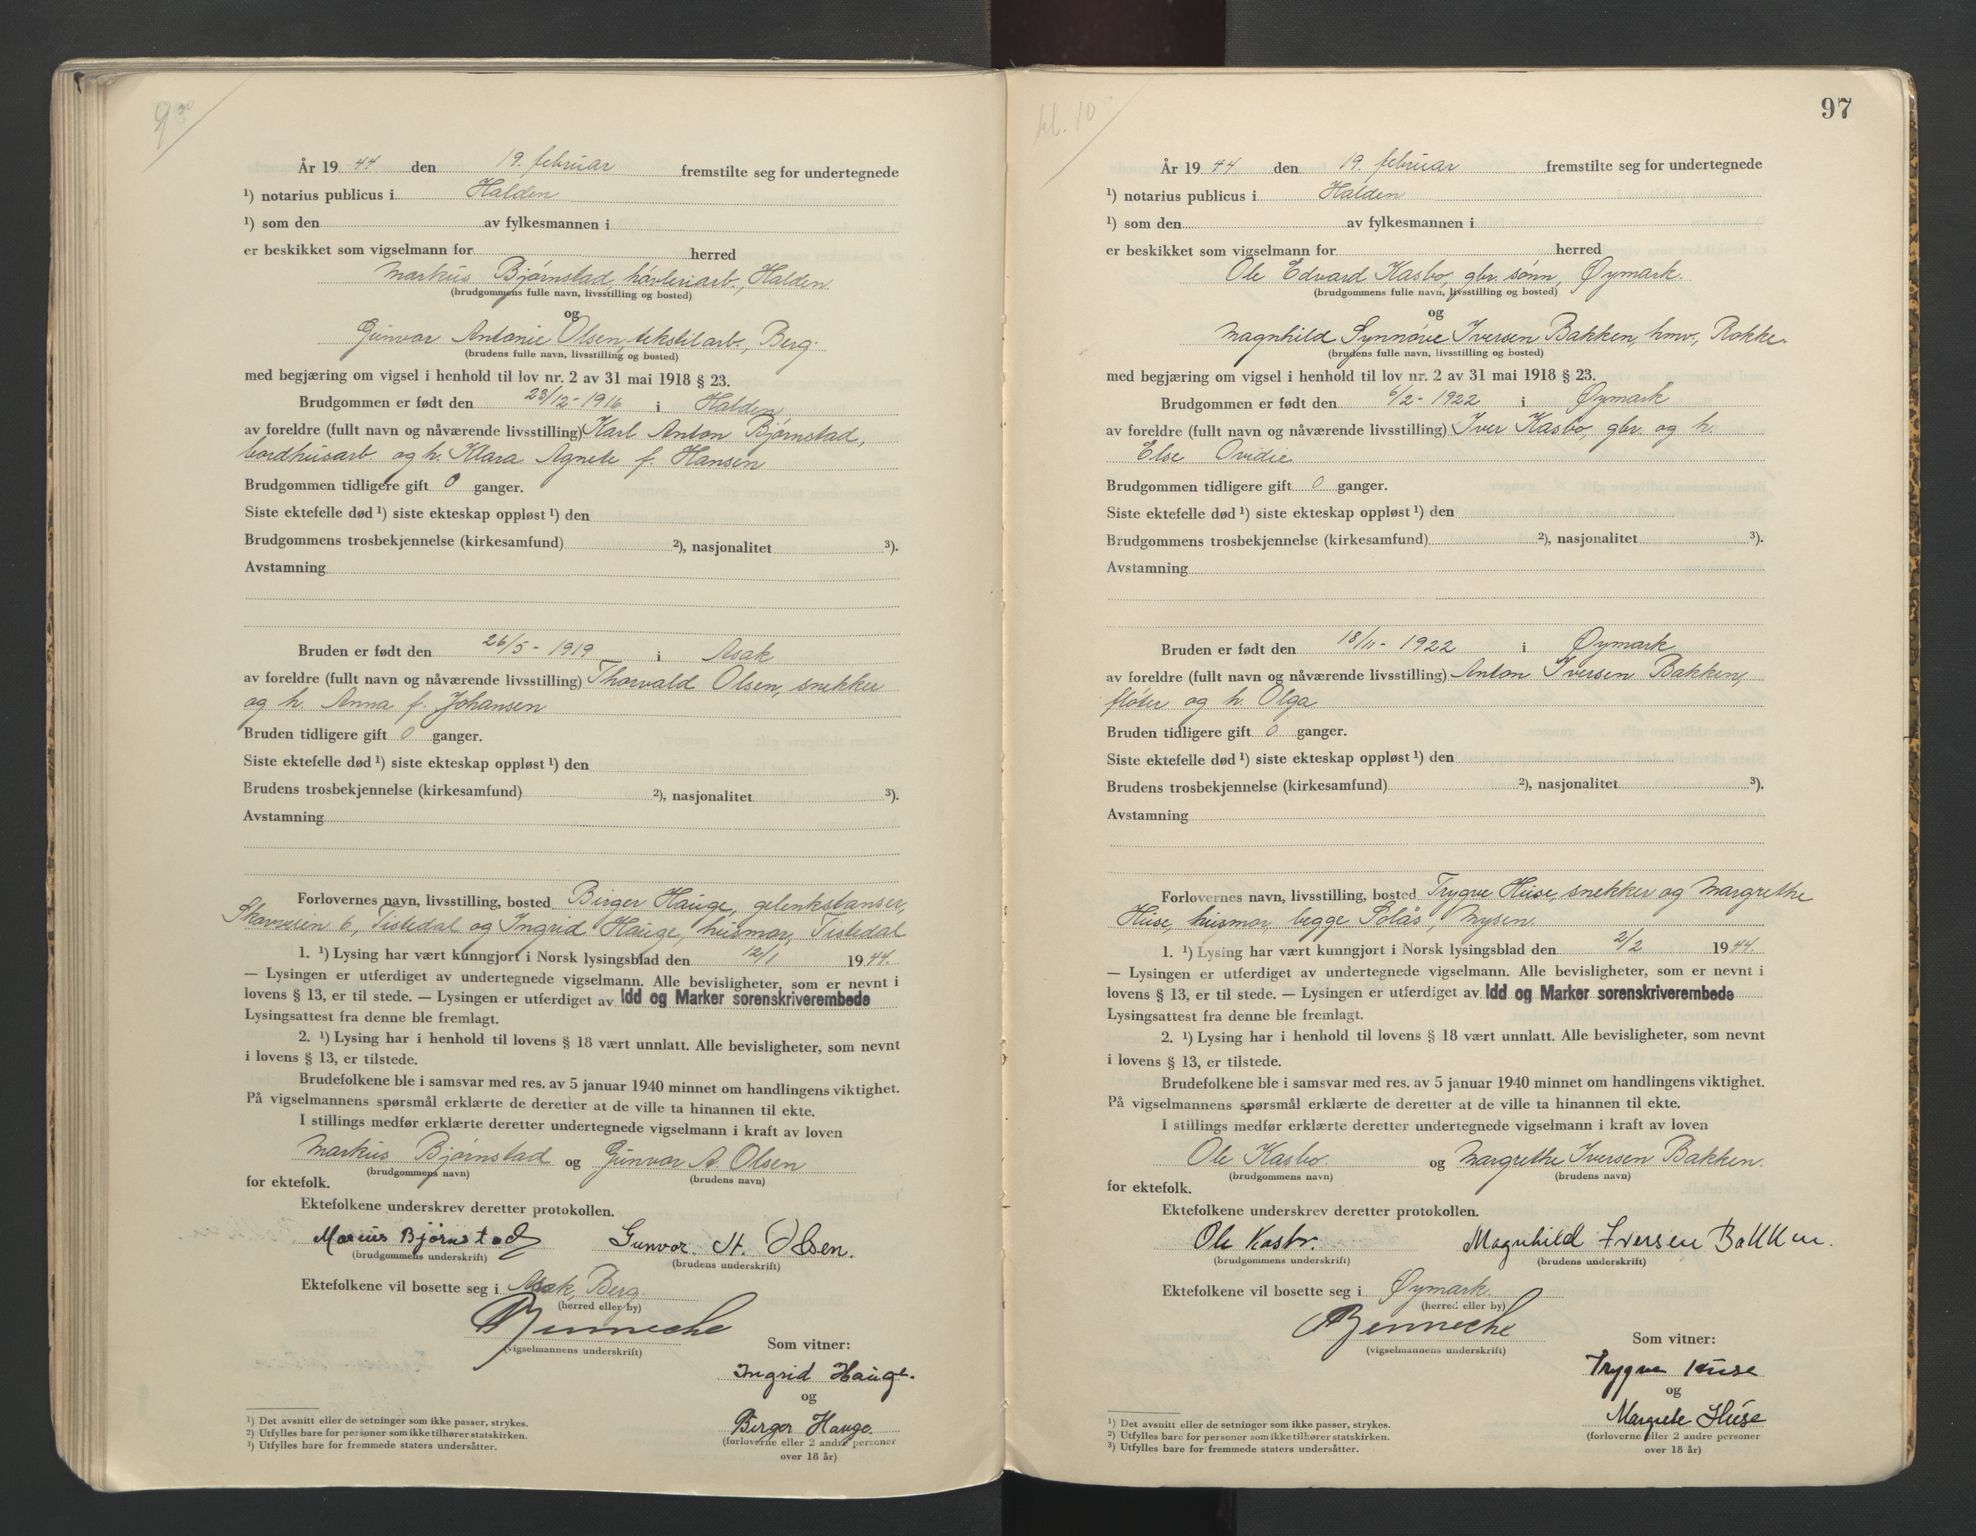 9³⁰
År 1944 den 19. februar fremstilte seg for undertegnede
¹) notarius publicus i Halden
¹) som den av fylkesmannen i
er beskikket som vigselmann for herred
Markus Bjørnstad, høvleriarb., Halden
(brudgommens fulle navn, livsstilling og bosted)
og
Gunvor Antonie Olsen, tekstilarb., Berg.
(brudens fulle navn, livsstilling og bosted)
med begjæring om vigsel i henhold til lov nr. 2 av 31 mai 1918 § 23.
Brudgommen er født den 23/12-1916 i Halden
av foreldre (fullt navn og nåværende livsstilling) Karl Anton Bjørnstad,
bordhusarb. og h. Klara Agnete f. Hansen
Brudgommen tidligere gift 0 ganger.
Siste ektefelle død¹) siste ekteskap oppløst¹) den
Brudgommens trosbekjennelse (kirkesamfund) ²), nasjonalitet ³).
Avstamning
Bruden er født den 26/5-1919 i Asak
av foreldre (fullt navn og nåværende livsstilling) Thorvald Olsen, snekker
og h. Anna f. Johansen
Bruden tidligere gift 0 ganger.
Siste ektefelle død¹) siste ekteskap oppløst¹) den
Brudens trosbekjennelse (kirkesamfund) ²), nasjonalitet ³).
Avstamning
Forlovernes navn, livsstilling, bosted Birger Hauge, gelenkstanser,
6, Tistedal og Ingrid Hauge, husmor, Tistedal
1. ¹) Lysing har vært kunngjort i Norsk lysingsblad den 12/1 1944.
— Lysingen er utferdiget av undertegnede vigselmann. Alle bevisligheter, som er nevnt i
lovens § 13, er til stede. — Lysingen er utferdiget av Idd og Marker sorenskriverembede
Lysingsattest fra denne ble fremlagt.
2. ¹) Lysing har i henhold til lovens § 18 vært unnlatt. Alle bevisligheter, som nevnt
i lovens § 13, er tilstede.
Brudefolkene ble i samsvar med res. av 5 januar 1940 minnet om handlingens viktighet.
På vigselmannens spørsmål erklærte de deretter at de ville ta hinannen til ekte.
I stillings medfør erklærte deretter undertegnede vigselmann i kraft av loven
Markus Bjørnstad og Gunvor A. Olsen
(brudgommens navn) (brudens navn)
for ektefolk.
Ektefolkene underskrev deretter protokollen.
Marius Bjørnstad Gunvor A. Olsen.
(brudgommens underskrift) (brudens underskrift)
Ektefolkene vil bosette seg i Asak, Berg.
(herred eller by)
Benneche
(vigselmannens underskrift)
Som vitner:
Ingrid Hauge.
og
Birger Hauge.
(forloverne eller 2 andre personer
over 18 år)
¹) Det avsnitt eller de setninger som ikke passer, strykes.
²) Utfylles bare for personer som ikke tilhører statskirken.
³) Utfylles bare for fremmede staters undersåtter.
kl. 10
97
År 1944 den 19. februar fremstilte seg for undertegnede
¹) notarius publicus i Halden
¹) som den av fylkesmannen i
er beskikket som vigselmann for herred
Ole Edvard Kasbo, gbr. sønn, Øymark.
(brudgommens fulle navn, livsstilling og bosted)
og
Magnhild Synnøve Iversen Bakken, hmv., Rokke.
(brudens fulle navn, livsstilling og bosted)
med begjæring om vigsel i henhold til lov nr. 2 av 31 mai 1918 § 23.
Brudgommen er født den 6/2-1922 i Øymark
av foreldre (fullt navn og nåværende livsstilling) Iver Kasbo, gbr. og h.
Else Ovidie
Brudgommen tidligere gift 0 ganger.
Siste ektefelle død¹) siste ekteskap oppløst¹) den
Brudgommens trosbekjennelse (kirkesamfund) ²), nasjonalitet ³).
Avstamning
Bruden er født den 18/11-1922 i Øymark
av foreldre (fullt navn og nåværende livsstilling) Anton Iversen Bakken,
fløter og h. Olga
Bruden tidligere gift 0 ganger.
Siste ektefelle død¹) siste ekteskap oppløst¹) den
Brudens trosbekjennelse (kirkesamfund) ²), nasjonalitet ³).
Avstamning
Forlovernes navn, livsstilling, bosted Trygve Huse, snekker og Margrethe
Huse, husmor, begge Solås, Mysen.
1. ¹) Lysing har vært kunngjort i Norsk lysingsblad den 2/2 1944.
— Lysingen er utferdiget av undertegnede vigselmann. Alle bevisligheter, som er nevnt i
lovens § 13, er til stede. — Lysingen er utferdiget av Idd og Marker sorenskriverembede
Lysingsattest fra denne ble fremlagt.
2. ¹) Lysing har i henhold til lovens § 18 vært unnlatt. Alle bevisligheter, som nevnt
i lovens § 13, er tilstede.
Brudefolkene ble i samsvar med res. av 5 januar 1940 minnet om handlingens viktighet.
På vigselmannens spørsmål erklærte de deretter at de ville ta hinannen til ekte.
I stillings medfør erklærte deretter undertegnede vigselmann i kraft av loven
Ole Kasbo. og Margrethe Iversen Bakken.
(brudgommens navn) (brudens navn)
for ektefolk.
Ektefolkene underskrev deretter protokollen.
Ole Kasbo. Magnhild Iversen Bakken.
(brudgommens underskrift) (brudens underskrift)
Ektefolkene vil bosette seg i Øymark.
(herred eller by)
Benneche
(vigselmannens underskrift)
Som vitner:
Trygve Huse
og
Margrete Huse
(forloverne eller 2 andre personer
over 18 år)
¹) Det avsnitt eller de setninger som ikke passer, strykes.
²) Utfylles bare for personer som ikke tilhører statskirken.
³) Utfylles bare for fremmede staters undersåtter.